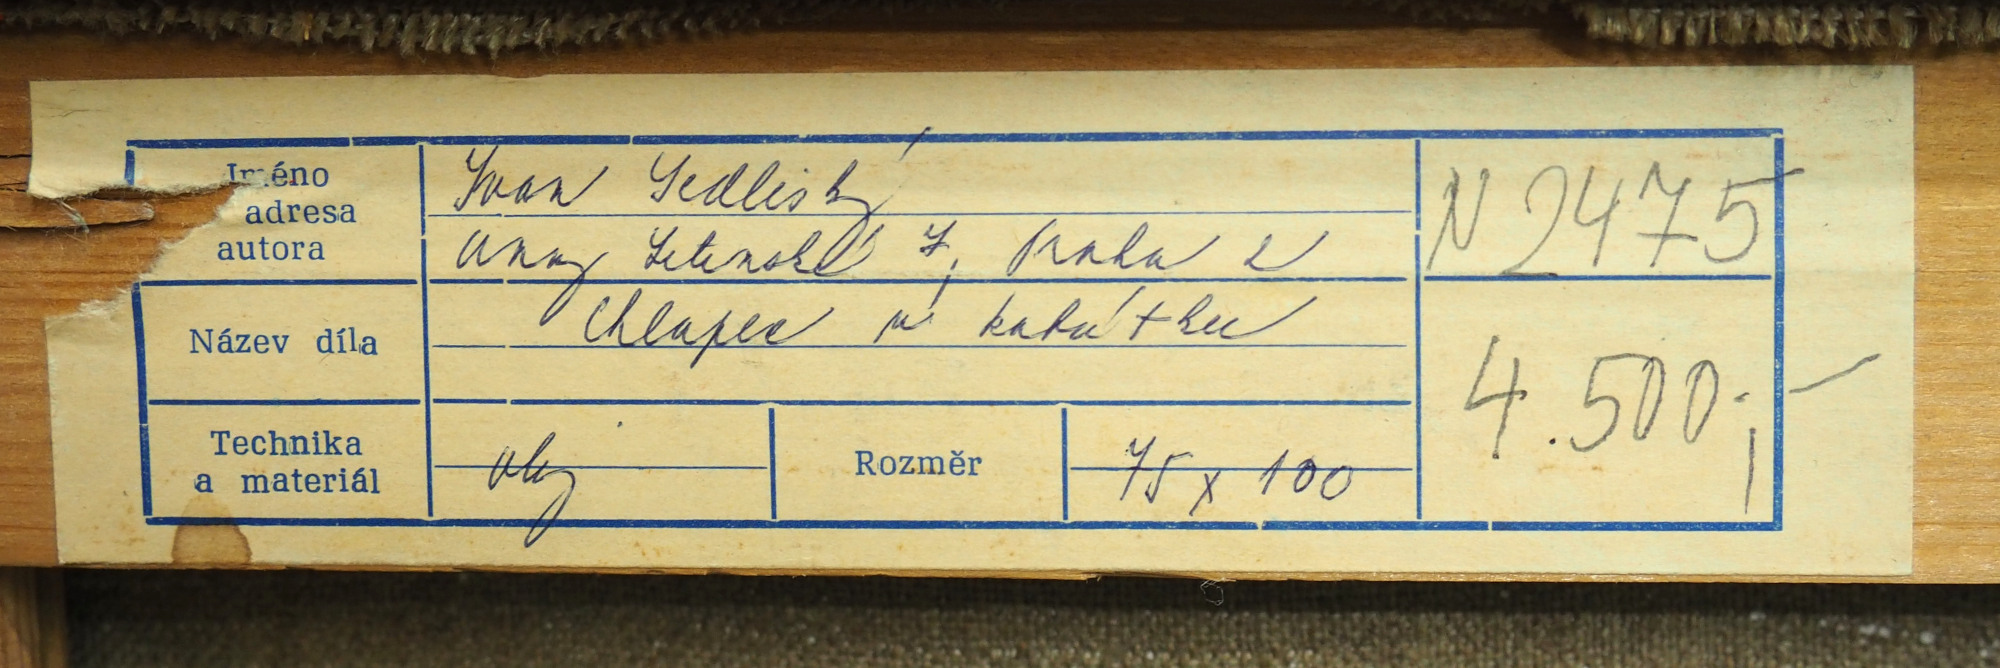 Jméno
adresa
autora
Ivan Sedliský
Anny Letenské 7, Praha 2
Název díla
Chlapec v kabátku
Technika
a materiál
olej
Rozměr
75 x 100
N 2475
4.500,-